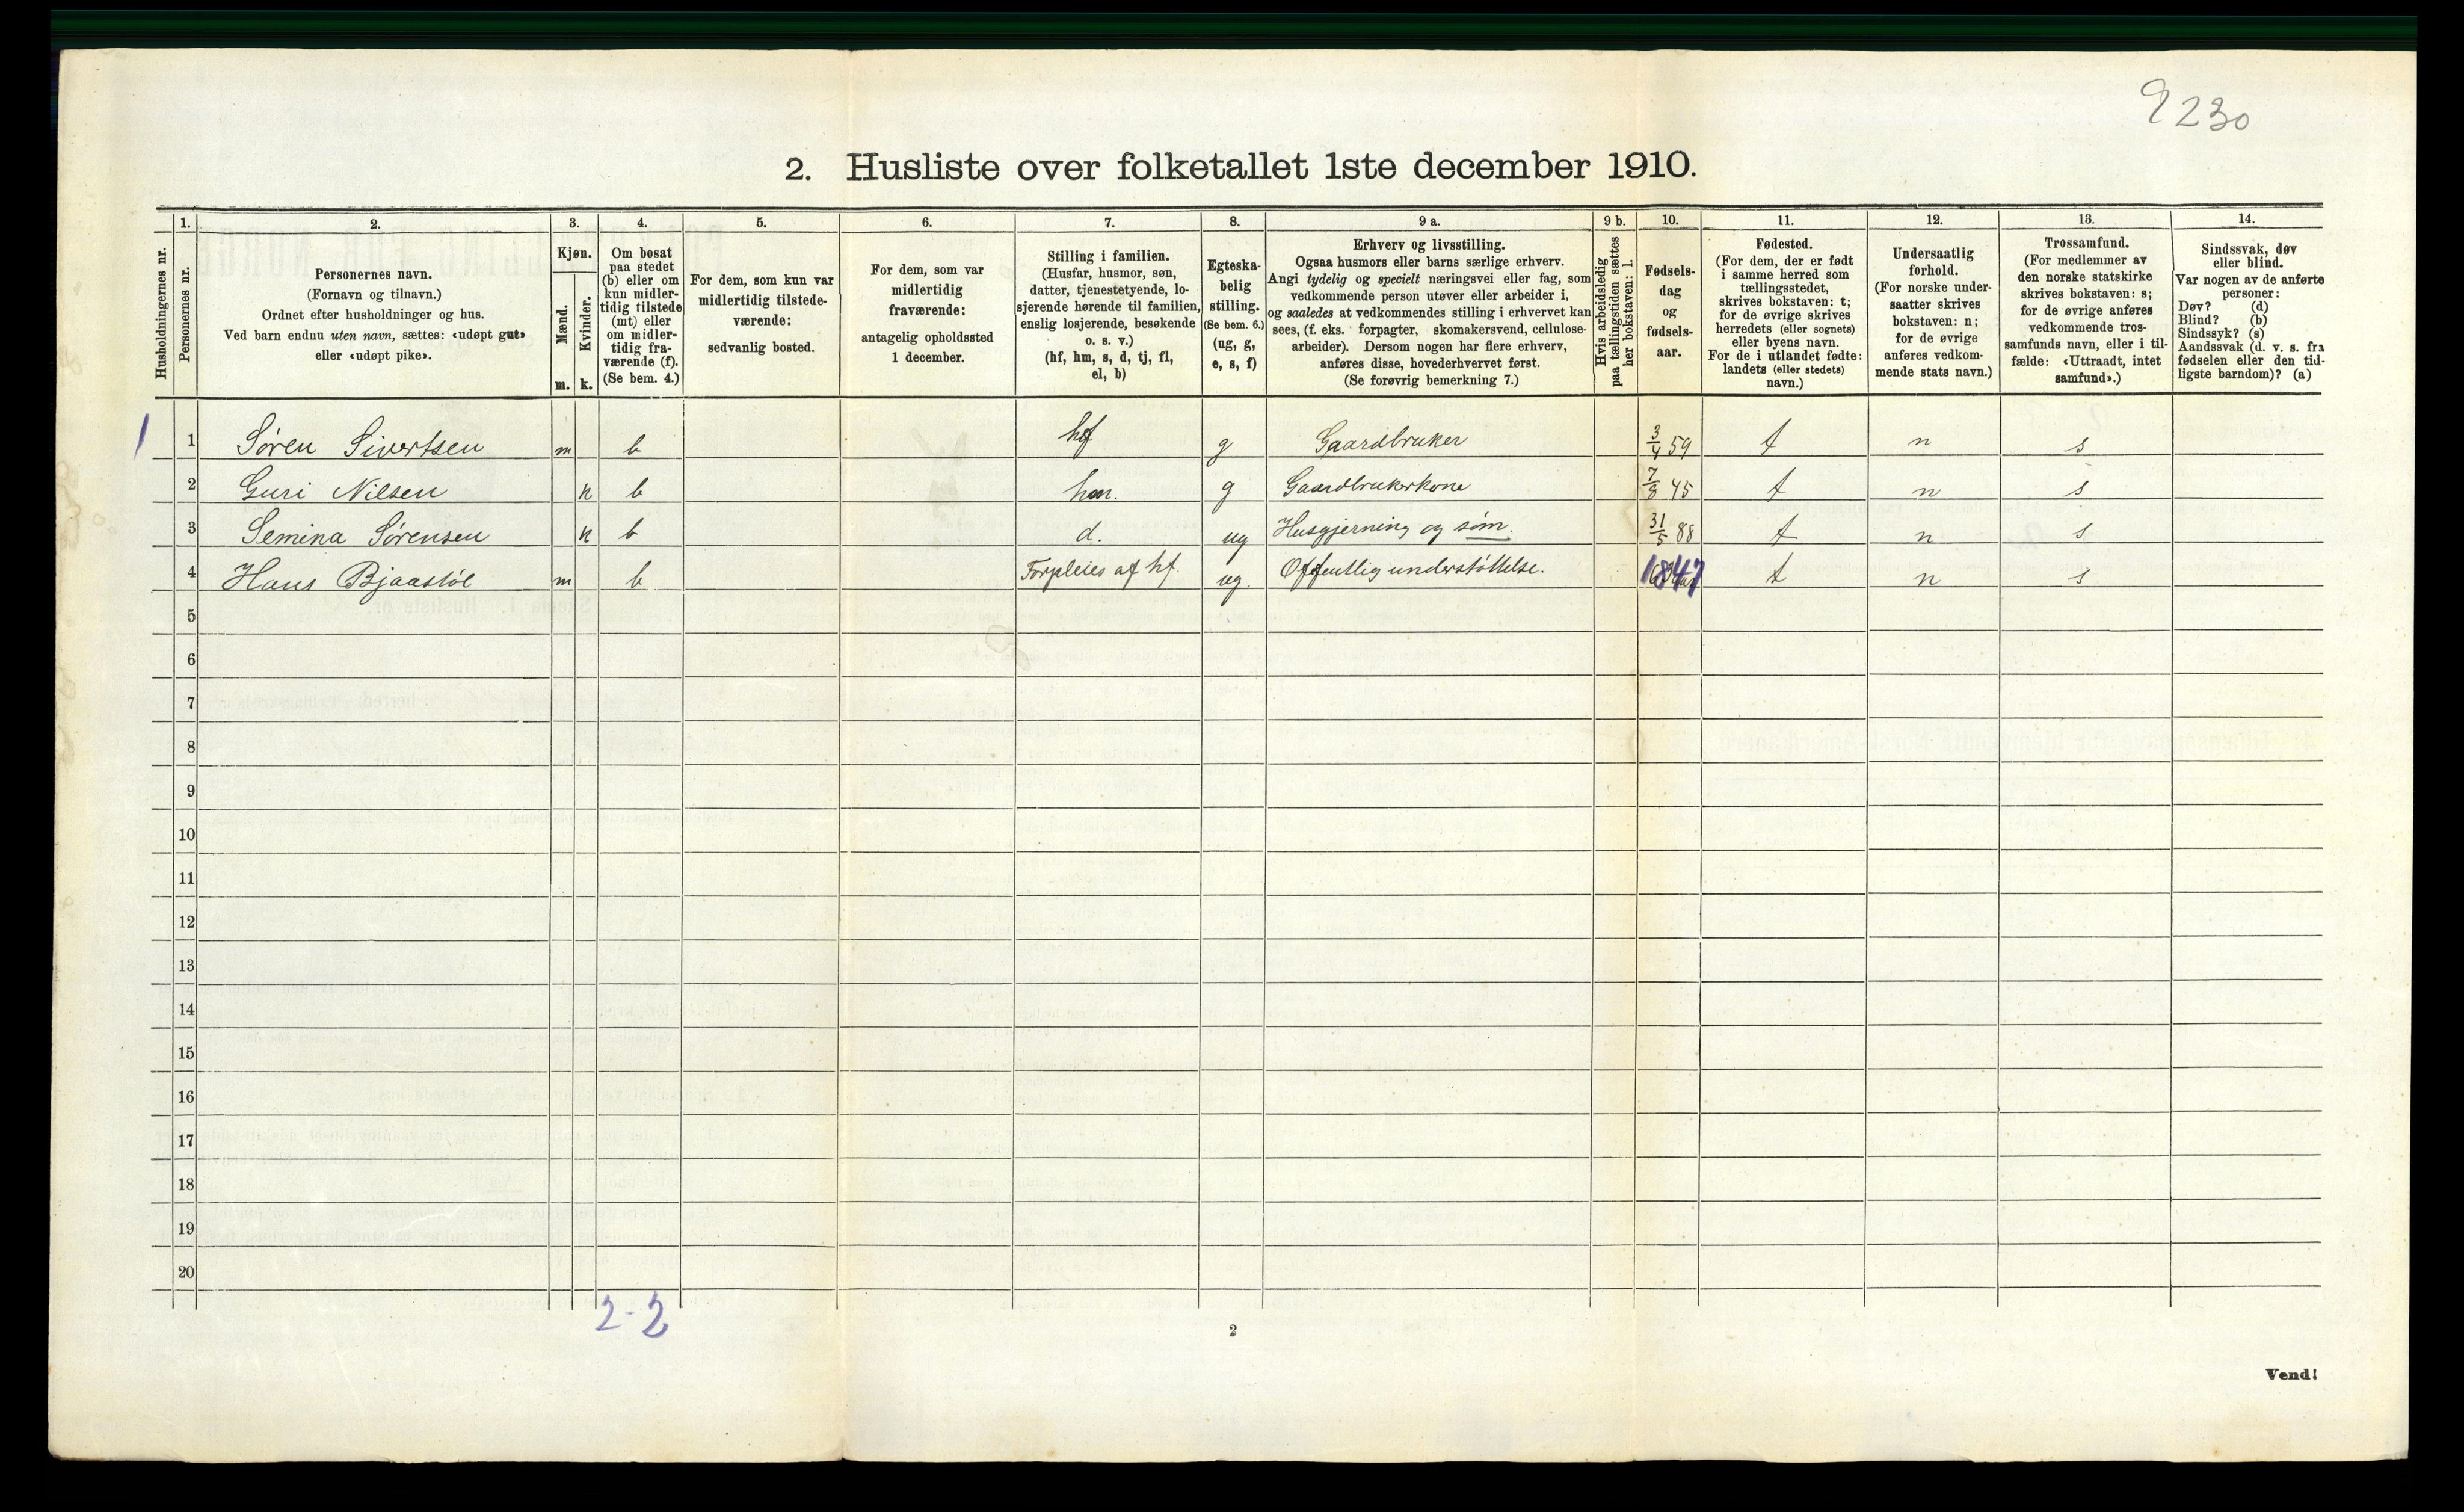 9230
2. Husliste over folketallet 1ste december 1910.
Husholdningernes nr.
1. Personernes nr.
2. Personernes navn.
(Fornavn og tilnavn.)
Ordnet efter husholdninger og hus.
Ved barn endnu uten navn, sættes: «udøpt gut»
eller «udøpt pike».
3. Kjøn.
Mænd. m.
Kvinder. k.
4. Om bosat
paa stedet
(b) eller om
kun midler-
tidig tilstede
(mt) eller
om midler-
tidig fra-
værende (f).
(Se bem. 4.)
5. For dem, som kun var
midlertidig tilstede-
værende:
sedvanlig bosted.
6. For dem, som var
midlertidig
fraværende:
antagelig opholdssted
1 december.
7. Stilling i familien.
(Husfar, husmor, søn,
datter, tjenestetyende, lo-
sjerende hørende til familien,
enslig losjerende, besøkende
o. s. v.)
(hf, hm, s, d, tj, fl,
el, b)
8. Egteska-
belig
stilling.
(Se bem. 6.)
(ug, g,
e, s, f)
9 a. Erhverv og livsstilling.
Ogsaa husmors eller barns særlige erhverv.
Angi tydelig og specielt næringsvei eller fag, som
vedkommende person utøver eller arbeider i,
og saaledes at vedkommendes stilling i erhvervet kan
sees, (f. eks. forpagter, skomakersvend, cellulose-
arbeider). Dersom nogen har flere erhverv,
anføres disse, hovederhvervet først.
(Se forøvrig bemerkning 7.)
9 b. Hvis arbeidsledig
paa tællingstiden sættes
her bokstaven: l.
10. Fødsels-
dag
og
fødsels-
aar.
11. Fødested.
(For dem, der er født
i samme herred som
tællingsstedet,
skrives bokstaven: t;
for de øvrige skrives
herredets (eller sognets)
eller byens navn.
For de i utlandet fødte:
landets (eller stedets)
navn.)
12. Undersaatlig
forhold.
(For norske under-
saatter skrives
bokstaven: n;
for de øvrige
anføres vedkom-
mende stats navn.)
13. Trossamfund.
(For medlemmer av
den norske statskirke
skrives bokstaven: s;
for de øvrige anføres
vedkommende tros-
samfunds navn, eller i til-
fælde: «Uttraadt, intet
samfund».)
14. Sindssvak, døv
eller blind.
Var nogen av de anførte
personer:
Døv? (d)
Blind? (b)
Sindssyk? (s)
Aandssvak (d. v. s. fra
fødselen eller den tid-
ligste barndom)? (a)
1 1 Søren Sivertsen m b hf g Gaardbruker 3/4 59 t n s
2 Guri Nilsen k b hm. g Gaardbrukerkone 7/9 45 t n s
3 Semina Sørensen k b d. ug Husgjerning og søm. 31/5 88 t n s
4 Hans Bjaastøl m b Forpleies af hf. ug. Offentlig understøttelse. 1847 t n s
5
6
7
8
9
10
11
12
13
14
15
16
17
18
19
20
2-2
2
Vend!